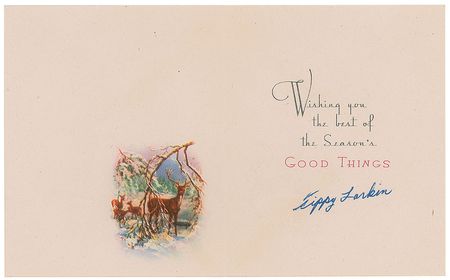 Wishing you
the best of
the Season's
GOOD THINGS
Tippy Larkin